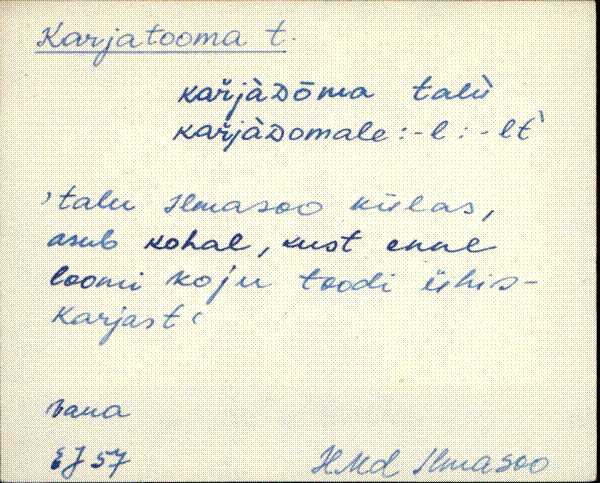 Karjatooma t.
kařjàDōma talù
kařjàDomale : -l : -lt`
'talu Ilmasoo külas,
asub kohal, kust enne
loomi koju toodi ühis-
karjast'
vana
EJ 57
HMd Ilmasoo